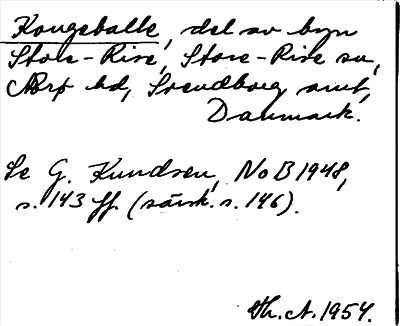 Kongeballe, del av byn
Store-Rise, Store-Rise sn,
Ærø hd, Svendborg amt,
Danmark.
Se G. Knudsen, NoB 1948,
s. 143 ff. (särsk. s. 146).
Th. A. 1954.